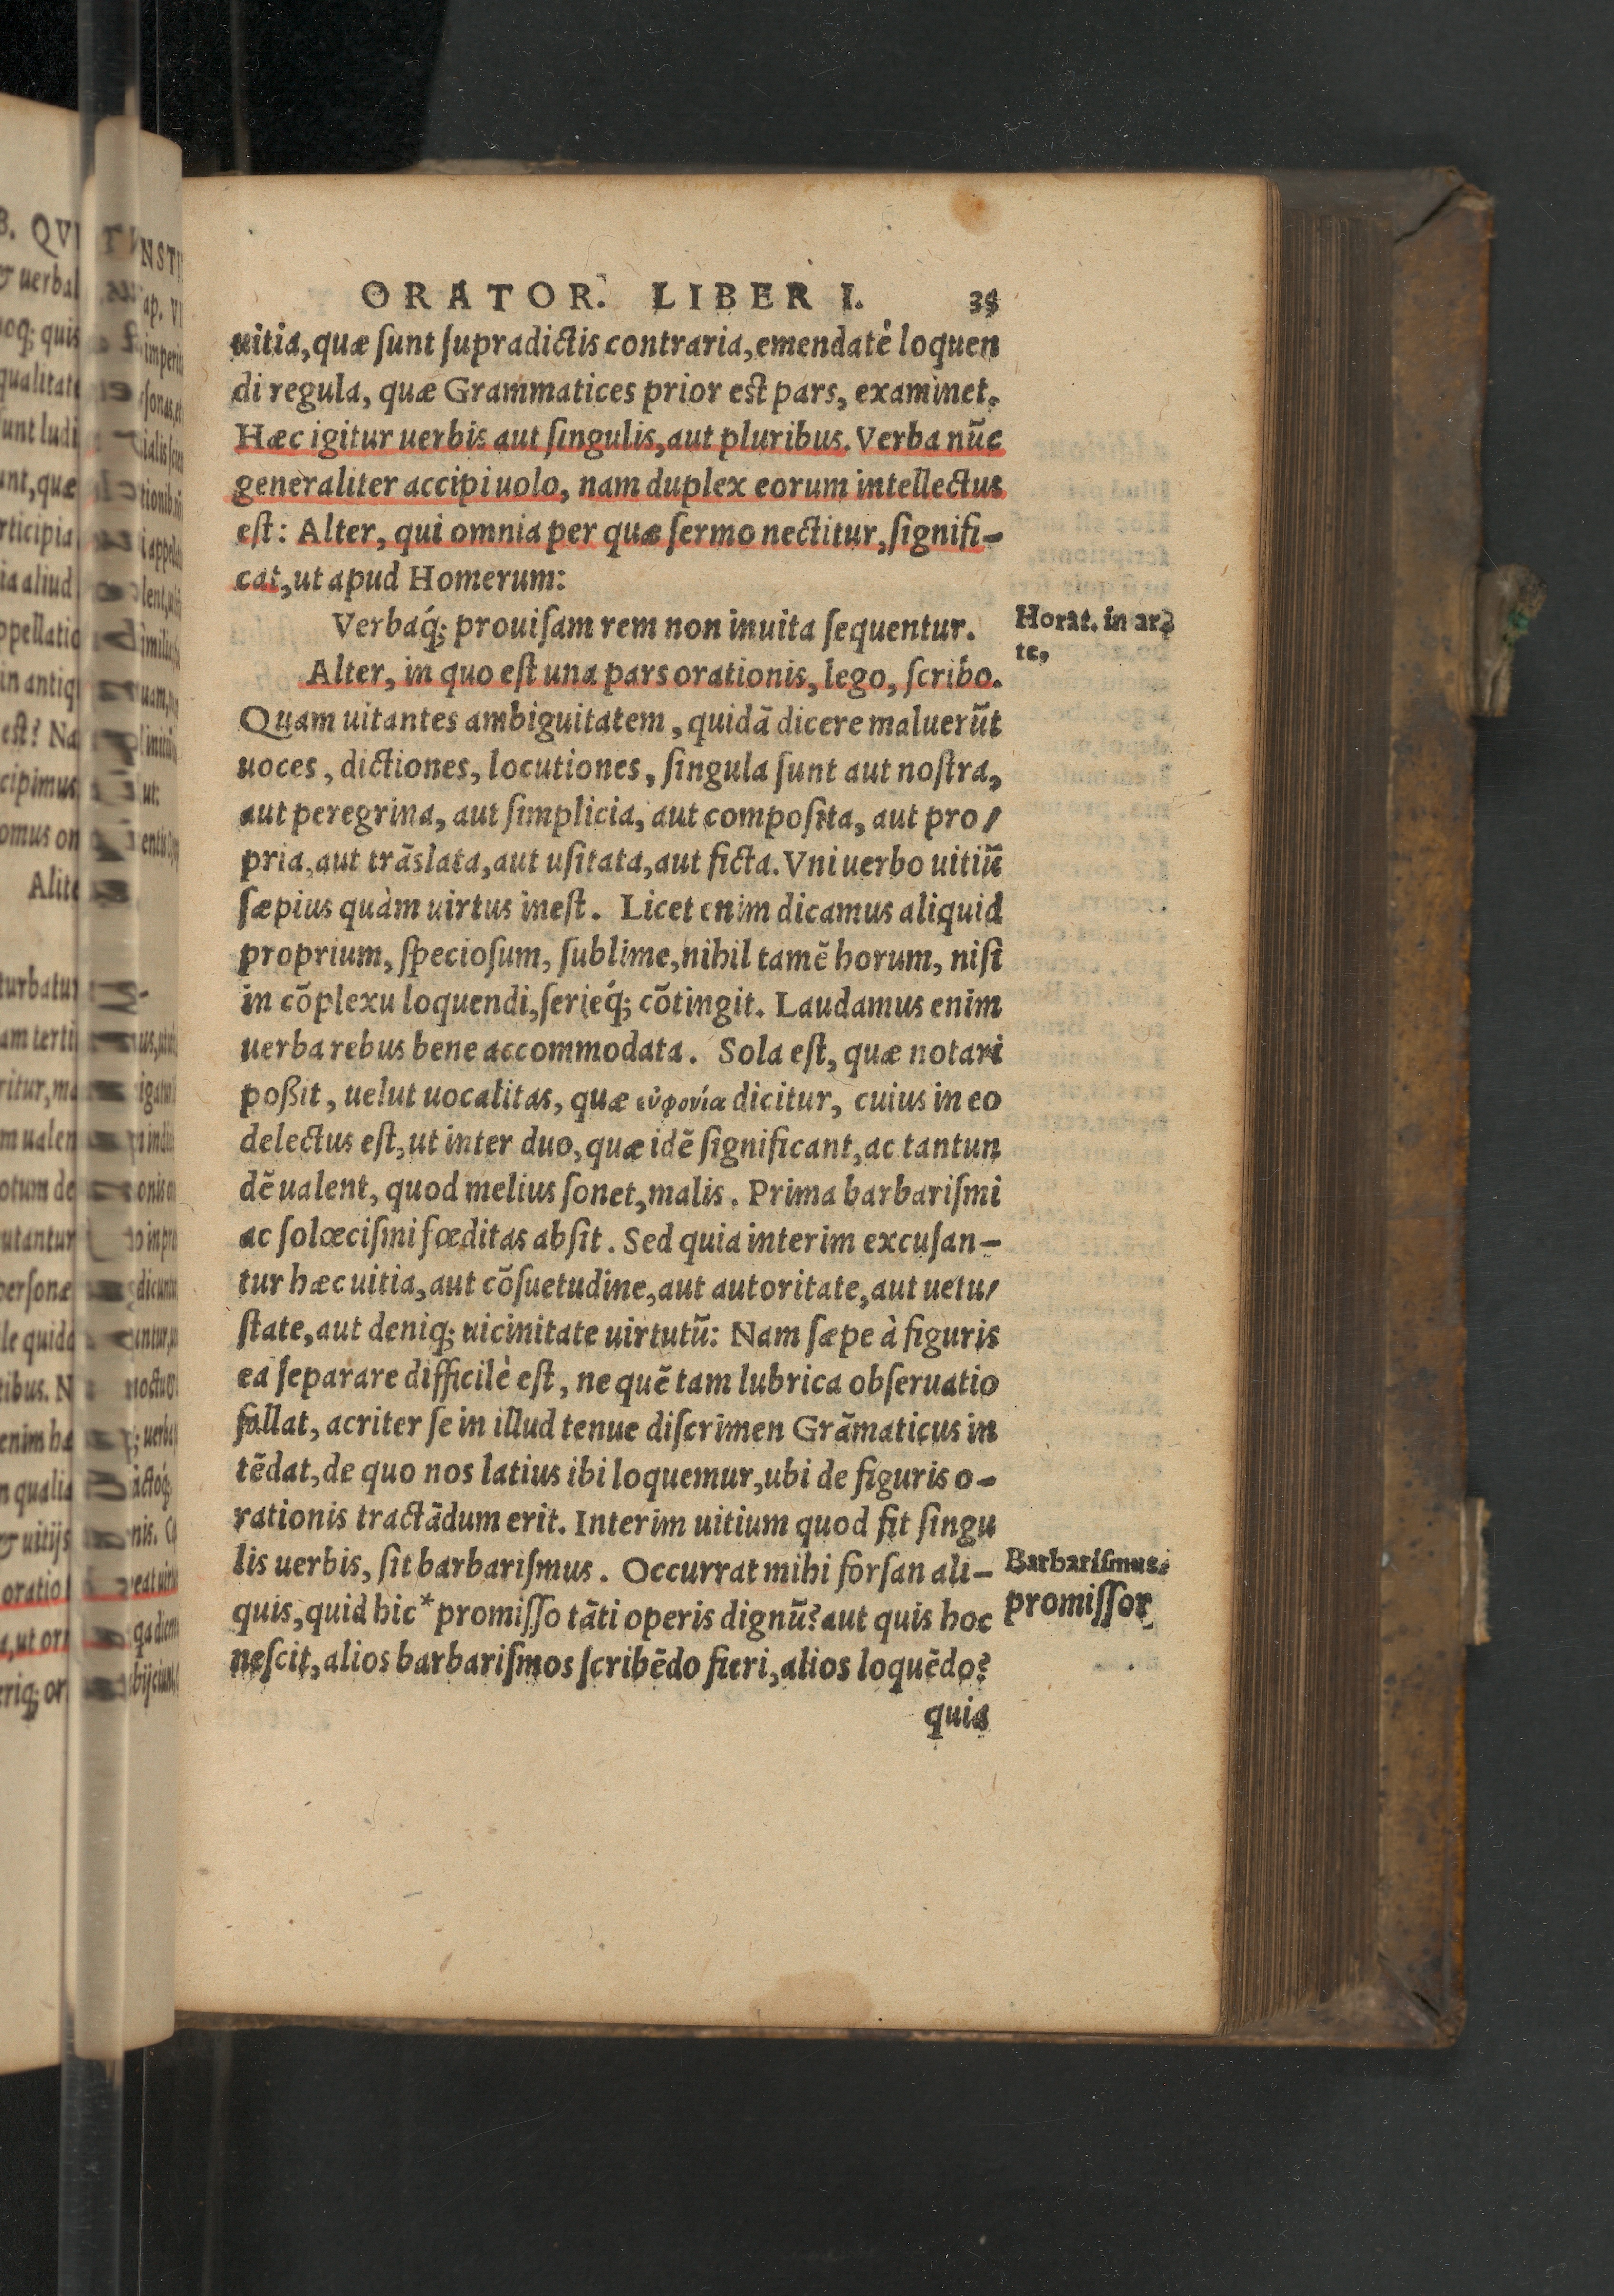 ORATOR. LIBER I. 35
uitia, quæ ſunt ſupradictis contraria, emendatè loquen
di regula, quæ Grammatices prior est pars, examinet.
Hæc igitur uerbis aut ſingulis, aut pluribus. Verba nūc
generaliter accipi uolo, nam duplex eorum intellectus
eſt: Alter, qui omnia per quæ ſermo nectitur, ſignifi-
cat, ut apud Homerum:
Verbaq́; prouiſam rem non inuita ſequentur.
Horat. in ar-
te,
Alter, in quo eſt una pars orationis, lego, ſcribo.
Quam uitantes ambiguitatem, quidā dicere maluerūt
uoces, dictiones, locutiones, ſingula ſunt aut noſtra,
aut peregrina, aut ſimplicia, aut compoſita, aut pro/
pria, aut trāslata, aut uſitata, aut ficta. Vni uerbo uitiū
ſæpius quàm uirtus ineſt. Licet enim dicamus aliquid
proprium, ſpecioſum, ſublime, nihil tamē horum, niſi
in cōplexu loquendi, ſerieq́; cōtingit. Laudamus enim
uerba rebus bene accommodata. Sola eſt, quæ notari
poßit, uelut uocalitas, quæ εὐφονία dicitur, cuius in eo
delectus eſt, ut inter duo, quæ idē ſignificant, ac tantun
dē ualent, quod melius ſonet, malis. Prima barbariſmi
ac ſolœciſmi fœditas abſit. Sed quia interim excuſan-
tur hæc uitia, aut cōſuetudine, aut autoritate, aut uetu/
ſtate, aut deniq; uicinitate uirtutū: Nam ſæpe à figuris
ea ſeparare difficilè eſt, ne quē tam lubrica obſeruatio
fallat, acriter ſe in illud tenue diſcrimen Grāmaticus in
tēdat, de quo nos latius ibi loquemur, ubi de figuris o-
rationis tractādum erit. Interim uitium quod fit ſingu
lis uerbis, ſit barbariſmus. Occurrat mihi forſan ali-
Barbariſmus.
quis, quid hic* promiſſo tāti operis dignū? aut quis hoc
promiſſor
neſcit, alios barbariſmos ſcribēdo fieri, alios loquēdo?
quia